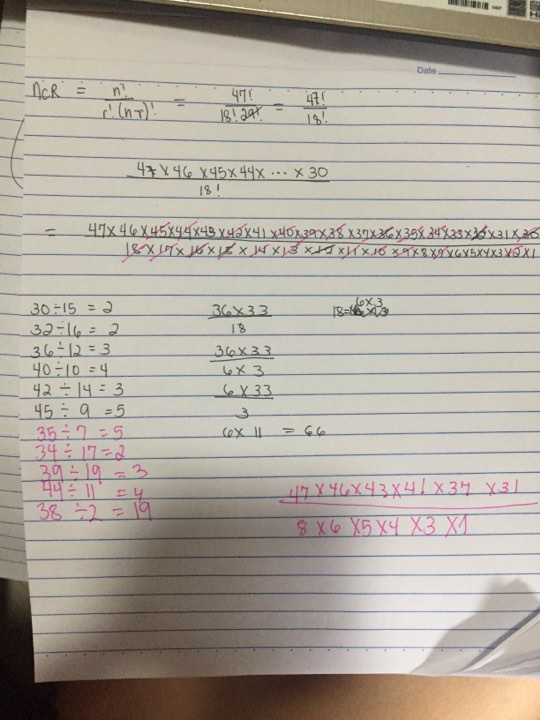 Date
nCR = n! / r!(n-r)! = 47! / 18! 29! = 47! / 18!
47 × 46 × 45 × 44 × ... × 30
18!
= 47×46×45×44×43×42×41×40×39×38×37×36×35×34×33×32×31×30
18×17×16×15×14×13×12×11×10×9×8×7×6×5×4×3×2×1
30 ÷ 15 = 2
32 ÷ 16 = 2
36 ÷ 12 = 3
40 ÷ 10 = 4
42 ÷ 14 = 3
45 ÷ 9 = 5
35 ÷ 7 = 5
34 ÷ 17 = 2
39 ÷ 19 = 3
44 ÷ 11 = 4
38 ÷ 2 = 19
36 × 33
18
36 × 33
6 × 3
6 × 33
3
6 × 11 = 66
6 × 3
18=
47 × 46 × 43 × 41 × 37 × 31
8 × 6 × 5 × 4 × 3 × 1